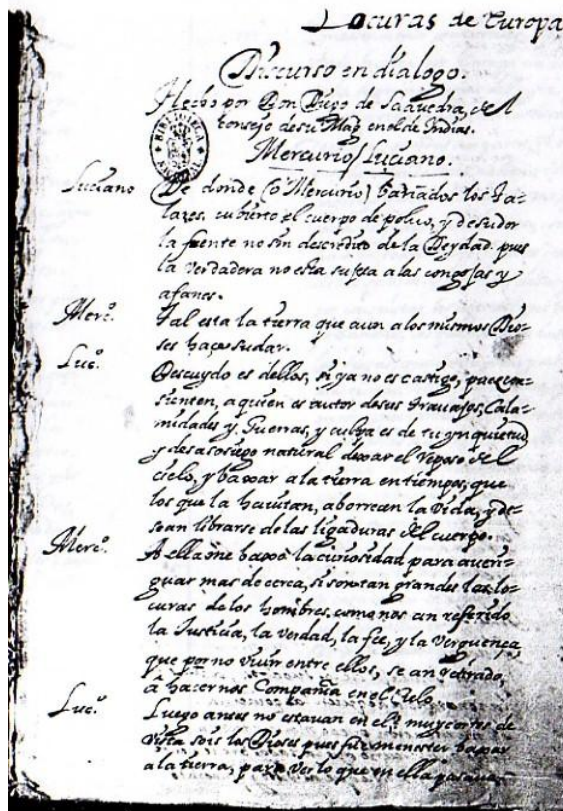 Locuras de Europa
Discurso en dialogo.
Hecho por Don Diego de Saavedra, del
Consejo de su Magd en el de Indias.
BIBLIOTECA
Mercurio / Luciano.
Luciano De donde (o Mercurio) bañados los Ta-
lares, cubierto el cuerpo de polvo, y de sudor
la frente no sin descredito de la Deydad. pues
la verdadera no esta sujeta a las congojas y
afanes.
Merco. Tal esta la tierra que aun a los mismos Dio-
ses haçe sudar.
Luco. Descuydo es dellos, si ya no es castigo, pues con-
sienten, a quien es autor de sus travajos, Cala-
midades y Guerras, y culpa es de tu ynquietud,
y desasosiego natural dexar el reposo del
cielo, y baxar a la tierra en tiempos, que
los que la havitan, aborrecen la vida, y de-
sean librarse de las ligaduras del cuerpo.
Merco. A ella me baxó la curiosidad para averi-
guar mas de cerca, si son tan grandes las lo-
curas de los hombres, como nos an referido
la Justicia, la verdad, la fee, y la verguença,
que por no vivir entre ellos, se an retirado,
â hacernos Compañia en el Cielo.
Luco. Luego antes no estavan en el? muy cortos de
vista sois los Dioses pues fue menester baxar
a la tierra, para ver lo que en ella pasava.